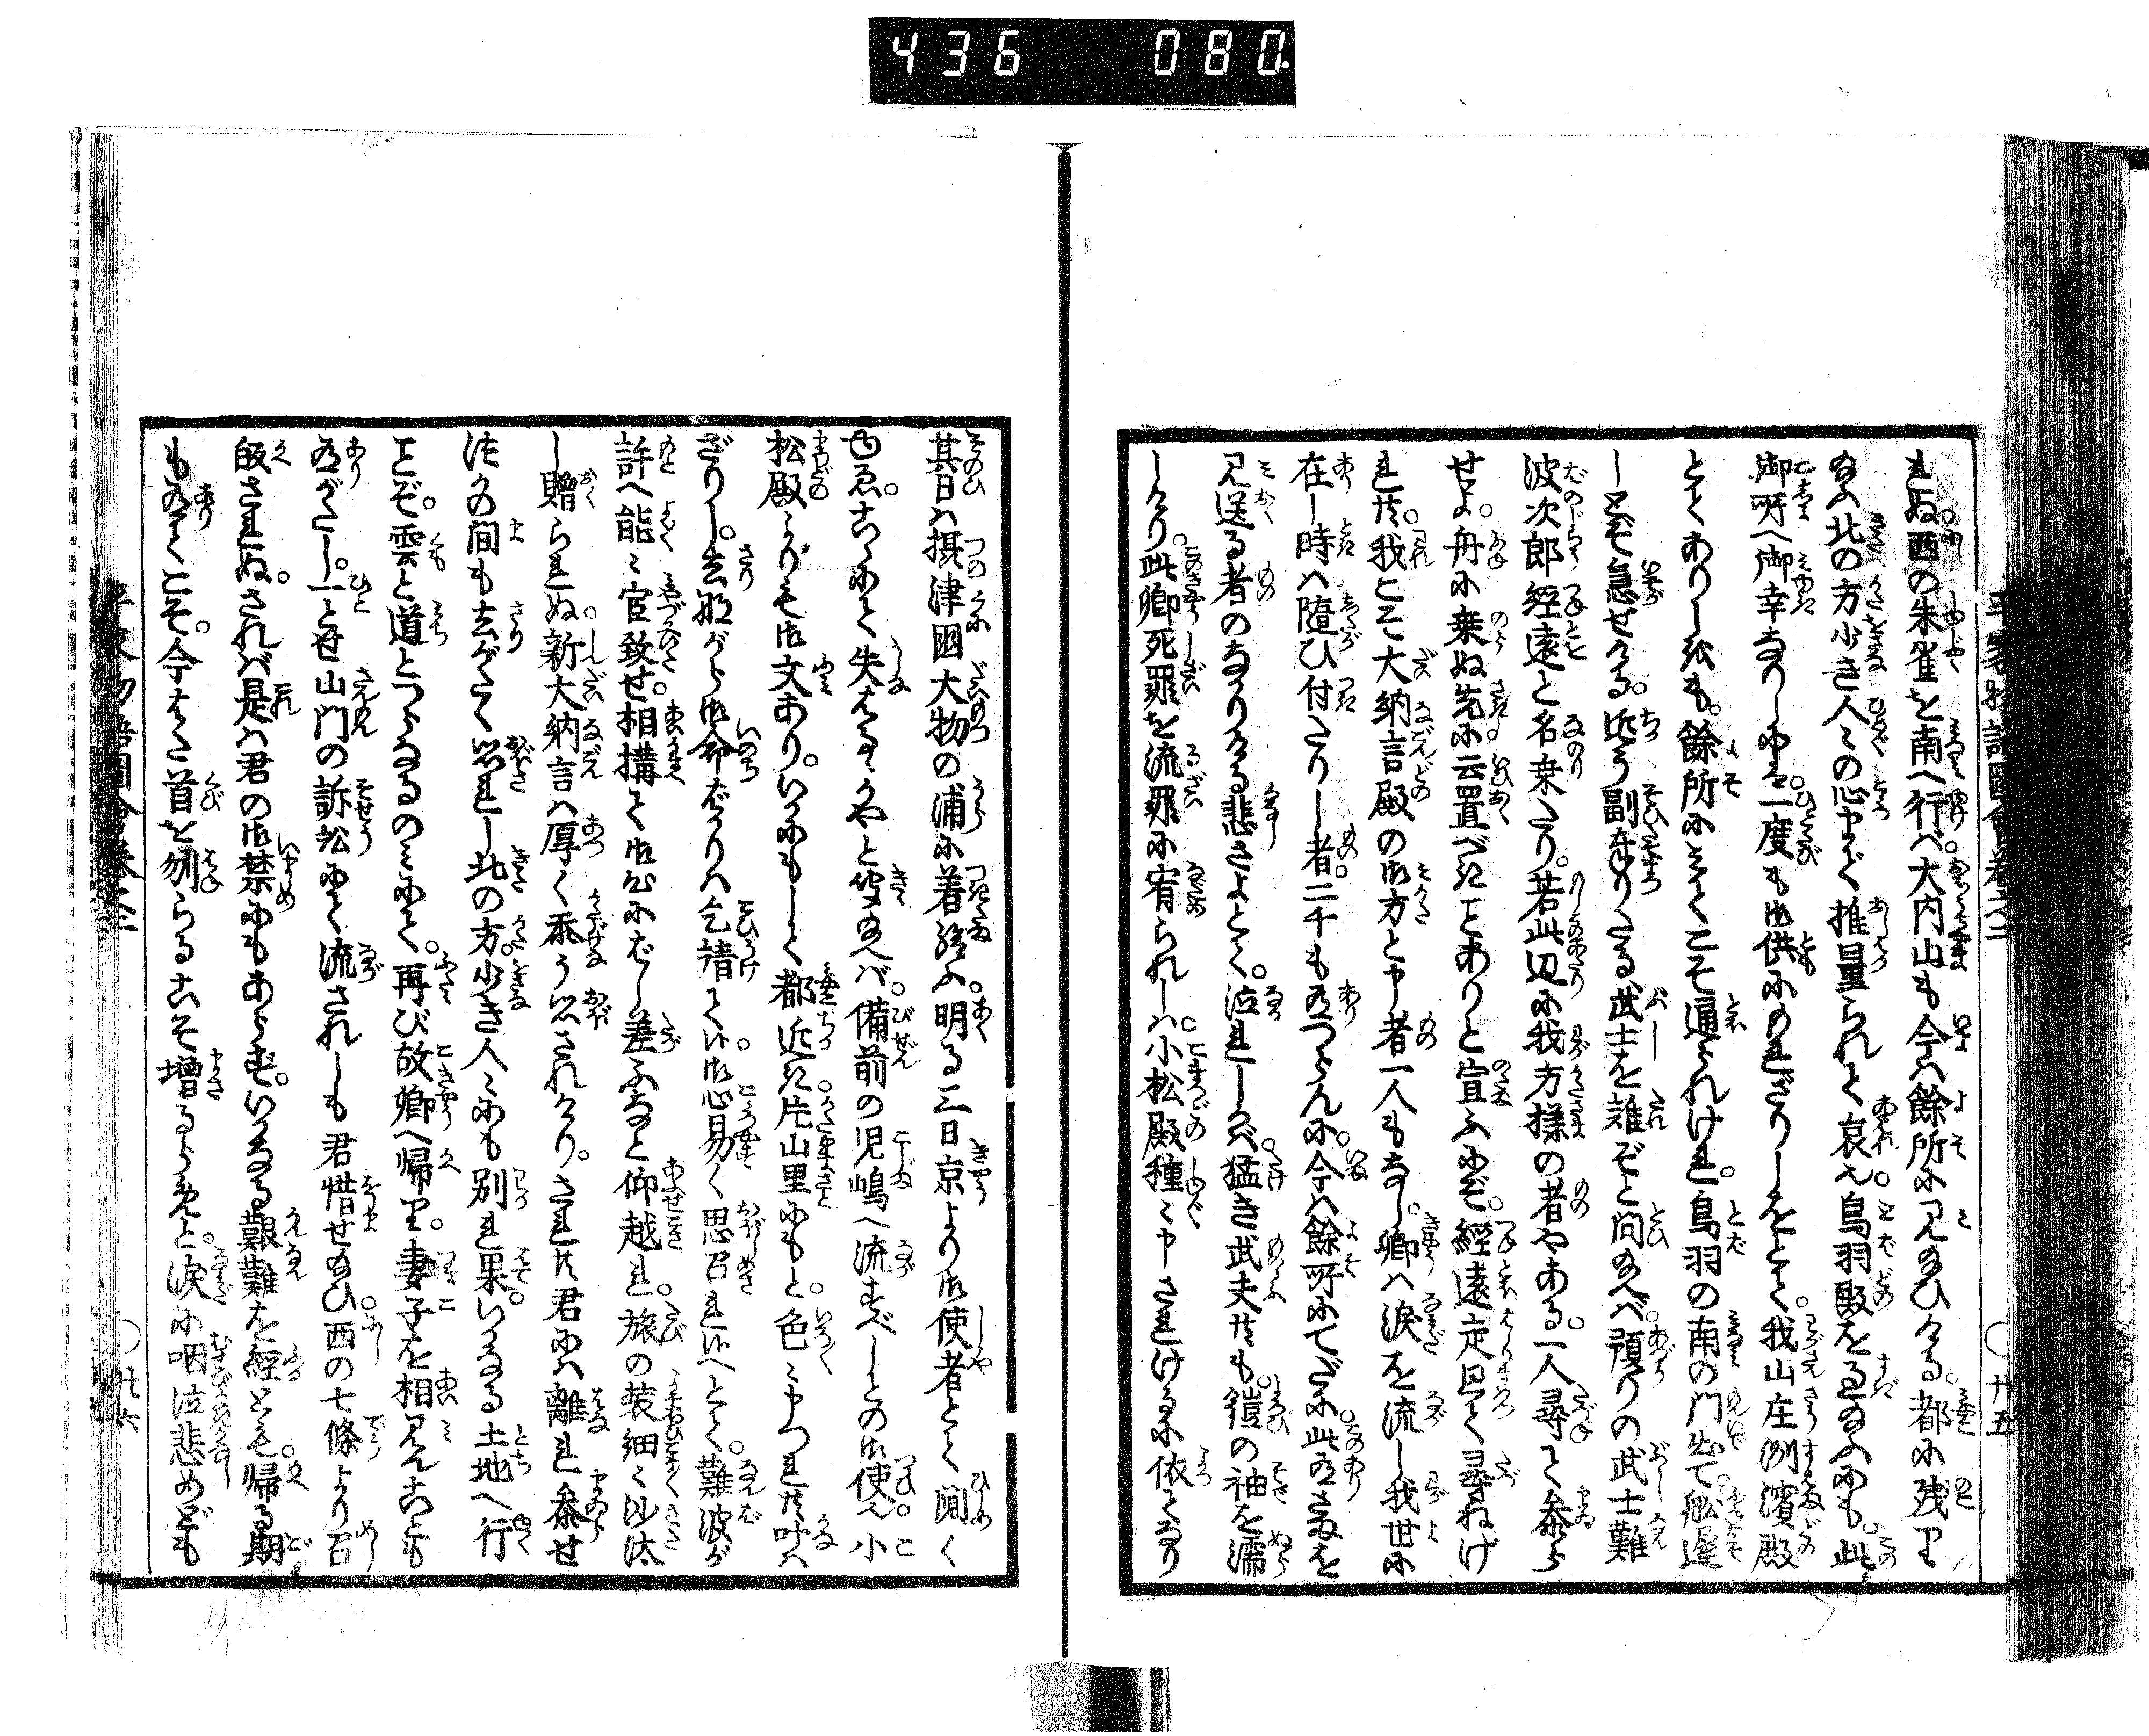 436 080.
れぬ。西の朱雀を南へ行ば。大内山も今は餘所に見給ひける。都に残り
給ふ北の方少き人々の心中まで推量られて哀也。鳥羽殿を過給ふにも。此
御所へ御幸なりしには。一度も御供にのれざりしをとて。我山庄洲濱殿
とてありしをも。餘所に見てこそ通られけれ。鳥羽の南の門出て。舩遅
しとぞ急せける。近う副奉りたる武士を誰ぞと問給へば。預りの武士難
波次郎經遠と名乗たり。若此辺に我方様の者やある。一人尋て参ら
せよ。舟に乗ぬ先に云置べきことありと宣ふにぞ。經遠走り廻て尋ねけ
れ共。我こそ大納言殿の御方と申者一人もなし。卿は涙を流し我世に
在し時は随ひ付たりし者。二千も有つらんに。今は餘所にてだに此有さまを
見送る者のなかりける悲さよとて。泣れしかば。猛き武夫共も。鎧の袖を濡
しけり。此卿死罪を流罪に宥られしは。小松殿種々申されけるに依てなり
平家物語圖會巷之二
〇廿五
其日は摂津國大物の浦に着給ふ。明る三日京より御使者とて閧く
ゆゑ。こゝにて失はるゝかやと聞給へば。備前の児嶋へ流すべしとの御使也。小
松殿よりも御文あり。いかにもして都近き片山里にもと。色々申つれ共叶は
ざりし。去ながら御命ばかりは乞請て候。御心易く思召れ候へとて。難波が
許へ能々宦致せ。相構て御心にばし差ふなと仰越れ。旅の装細々沙汰
し贈られぬ。新大納言は厚く忝う思されけり。され共君には離れ参せ
法かの間も去がたく思れし北の方。少き人々にも別れ果。いかなる土地へ行
ことぞ。雲と道とつらなるのみにて。再び故郷へ帰り。妻子を相見んことも
有がたし。一とせ山門の訴訟にて流されしも君惜せ給ひ。西の七條より召
皈されぬ。されば是は君の御禁にもあらず。いかなる艱難を經とも。帰る期
も有てこそ。今はた首を刎らるゝこそ増るらめと。涙に咽泣悲めども